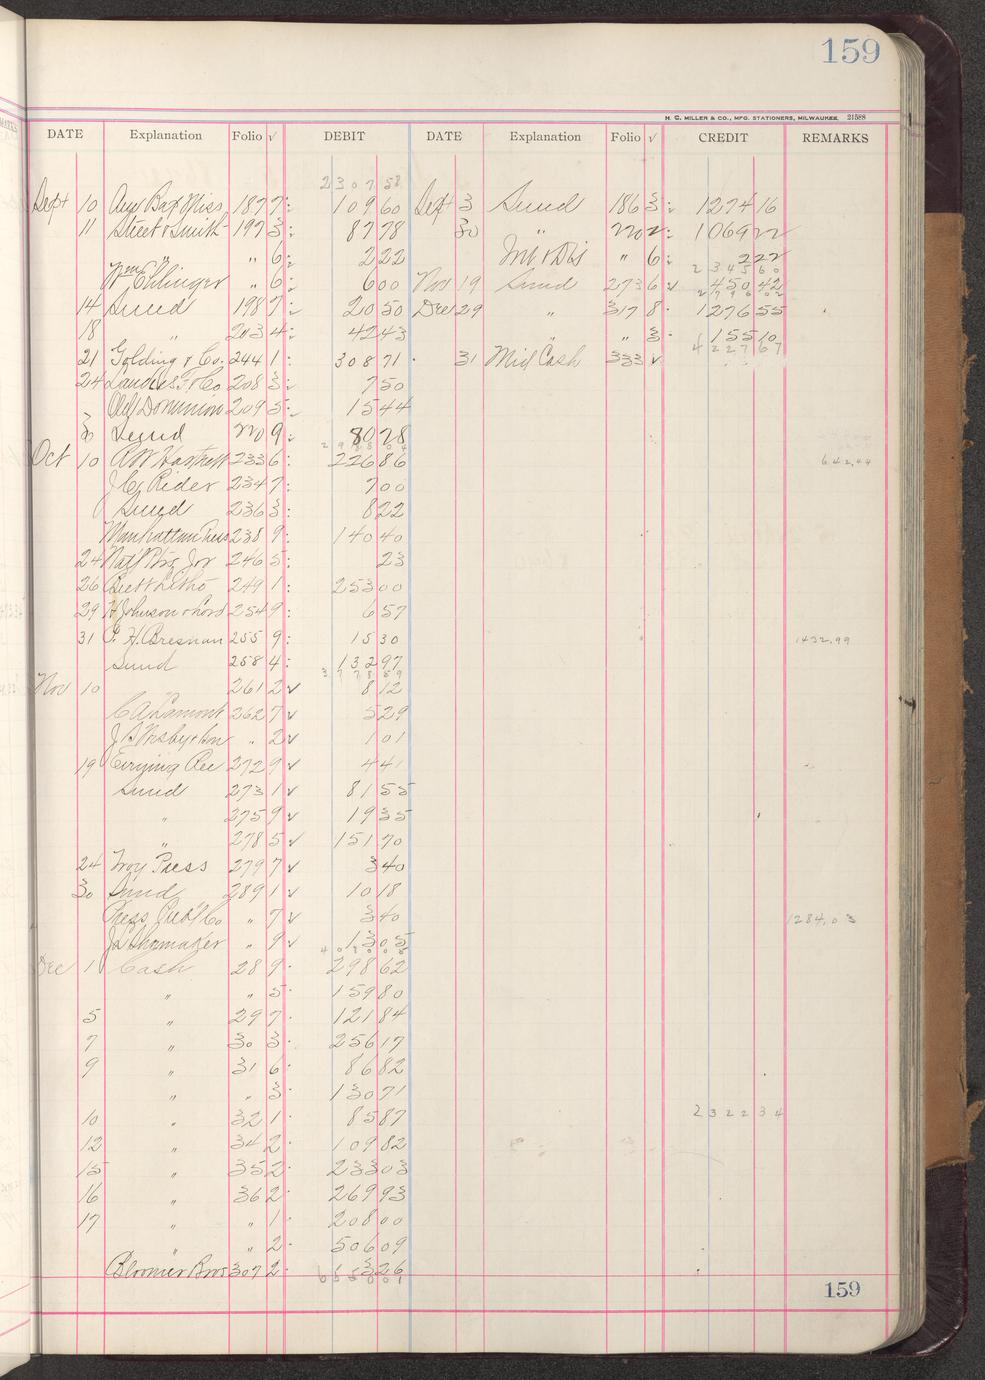 159
H. C. MILLER & CO., MFG. STATIONERS, MILWAUKEE. 21588
DATE Explanation Folio √ DEBIT DATE Explanation Folio √ CREDIT REMARKS
2307 58
Sept 10 Am Bap Miss 187 7 109 60 Sept 3 Sund 186 3 1274 16
11 Street & Smith 197 3 87 78 30 " 220 2 1069 22
" " 6 2 22 Int & Dis " 6 2 22
2345 60
Wm Ehlinger " 6 6 00 Nov 19 Sund 273 6 √ 450 42
2796 02
14 Sund 198 7 20 50 Dec 29 " 317 8 1276 55
18 " 203 4 42 43 " 3 155 10
4227 67
21 Golding & Co. 244 1 308 71 31 Mid Cash 333 √
24 208 3 7 50
Old Dominion 209 5 15 44
30 Sund 220 9 80 28
Oct 10 233 6 226 86 642.44
J C Rider 234 7 7 00
Sund 236 3 8 22
Manhattan Press 238 9 140 40
24 Nat'l Ptg Jor 246 5 23
26 249 1 253 00
29 H Johnson & Lord 254 9 6 57
31 P. H. Bresnan 255 9 15 30 1432.99
Sund 258 4 132 97
Nov 10 " 261 2 √ 8 12
C A Lamont 262 7 √ 5 29
" 2 √ 1 01
19 272 9 √ 4 41
Sund 273 1 √ 81 55
" 275 9 √ 19 35
" 278 5 √ 151 70
24 Troy Press 279 7 √ 3 40
30 Sund 289 1 √ 10 18
Press Pub'g Co " 7 √ 3 40 1284.03
J L Shomaker " 9 √ 13 05
Dec 1 Cash 28 9 298 62
" " 5 159 80
5 " 29 7 121 84
7 " 30 3 256 17
9 " 31 6 86 82
" " 3 130 71
10 " 32 1 85 87 2322 34
12 " 34 2 109 82
15 " 35 2 233 03
16 " 36 2 269 93
17 " " 1 208 00
" " 2 506 09
Bloomer Bros 307 2 3 26
159